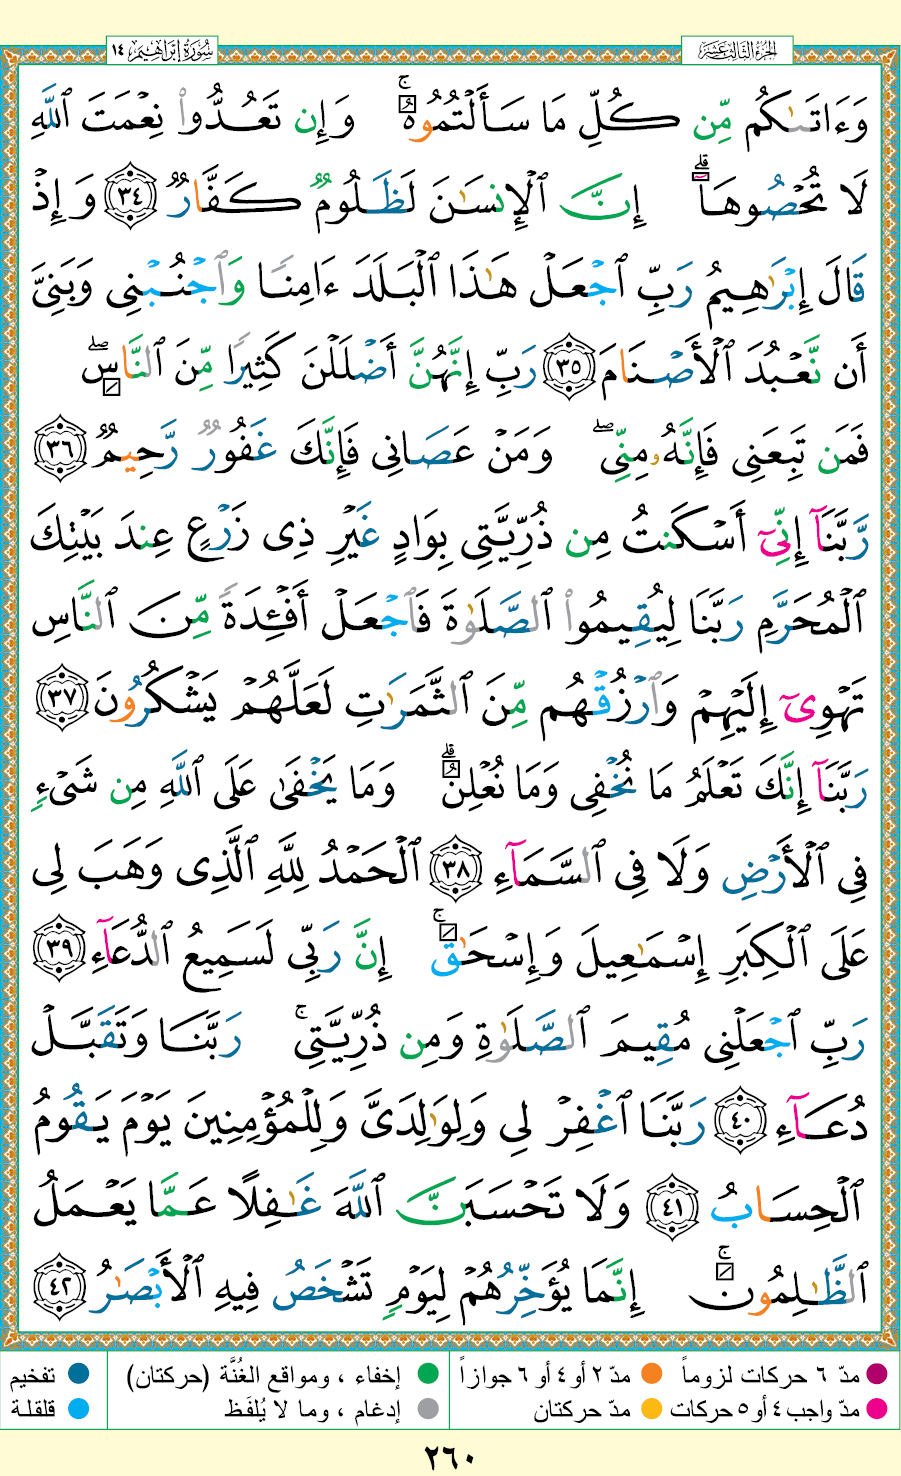 الجزء الثالث عشر
سورة إبراهيم ١٤
وَءَاتَىٰكُم مِّن كُلِّ مَا سَأَلْتُمُوهُۚ وَإِن تَعُدُّوا۟ نِعْمَتَ ٱللَّهِ
لَا تُحْصُوهَآۗ إِنَّ ٱلْإِنسَـٰنَ لَظَلُومٌ كَفَّارٌ ﴿٣٤﴾ وَإِذْ
قَالَ إِبْرَٰهِيمُ رَبِّ ٱجْعَلْ هَـٰذَا ٱلْبَلَدَ ءَامِنًا وَٱجْنُبْنِى وَبَنِىَّ
أَن نَّعْبُدَ ٱلْأَصْنَامَ ﴿٣٥﴾ رَبِّ إِنَّهُنَّ أَضْلَلْنَ كَثِيرًا مِّنَ ٱلنَّاسِۖ
فَمَن تَبِعَنِى فَإِنَّهُۥ مِنِّىۖ وَمَنْ عَصَانِى فَإِنَّكَ غَفُورٌ رَّحِيمٌ ﴿٣٦﴾
رَّبَّنَآ إِنِّىٓ أَسْكَنتُ مِن ذُرِّيَّتِى بِوَادٍ غَيْرِ ذِى زَرْعٍ عِندَ بَيْتِكَ
ٱلْمُحَرَّمِ رَبَّنَا لِيُقِيمُوا۟ ٱلصَّلَوٰةَ فَٱجْعَلْ أَفْـِٔدَةً مِّنَ ٱلنَّاسِ
تَهْوِىٓ إِلَيْهِمْ وَٱرْزُقْهُم مِّنَ ٱلثَّمَرَٰتِ لَعَلَّهُمْ يَشْكُرُونَ ﴿٣٧﴾
رَبَّنَآ إِنَّكَ تَعْلَمُ مَا نُخْفِى وَمَا نُعْلِنُۗ وَمَا يَخْفَىٰ عَلَى ٱللَّهِ مِن شَىْءٍ
فِى ٱلْأَرْضِ وَلَا فِى ٱلسَّمَآءِ ﴿٣٨﴾ ٱلْحَمْدُ لِلَّهِ ٱلَّذِى وَهَبَ لِى
عَلَى ٱلْكِبَرِ إِسْمَـٰعِيلَ وَإِسْحَـٰقَۚ إِنَّ رَبِّى لَسَمِيعُ ٱلدُّعَآءِ ﴿٣٩﴾
رَبِّ ٱجْعَلْنِى مُقِيمَ ٱلصَّلَوٰةِ وَمِن ذُرِّيَّتِىۚ رَبَّنَا وَتَقَبَّلْ
دُعَآءِ ﴿٤٠﴾ رَبَّنَا ٱغْفِرْ لِى وَلِوَٰلِدَىَّ وَلِلْمُؤْمِنِينَ يَوْمَ يَقُومُ
ٱلْحِسَابُ ﴿٤١﴾ وَلَا تَحْسَبَنَّ ٱللَّهَ غَـٰفِلًا عَمَّا يَعْمَلُ
ٱلظَّـٰلِمُونَۚ إِنَّمَا يُؤَخِّرُهُمْ لِيَوْمٍ تَشْخَصُ فِيهِ ٱلْأَبْصَـٰرُ ﴿٤٢﴾
مدّ ٦ حركات لزوماً مدّ ٢ أو ٤ أو ٦ جوازاً إخفاء ، ومواقع الغُنَّة (حركتان) تفخيم
مدّ واجب ٤ أو ٥ حركات مدّ حركتان إدغام ، وما لا يُلفَظ قلقلة
٢٦٠